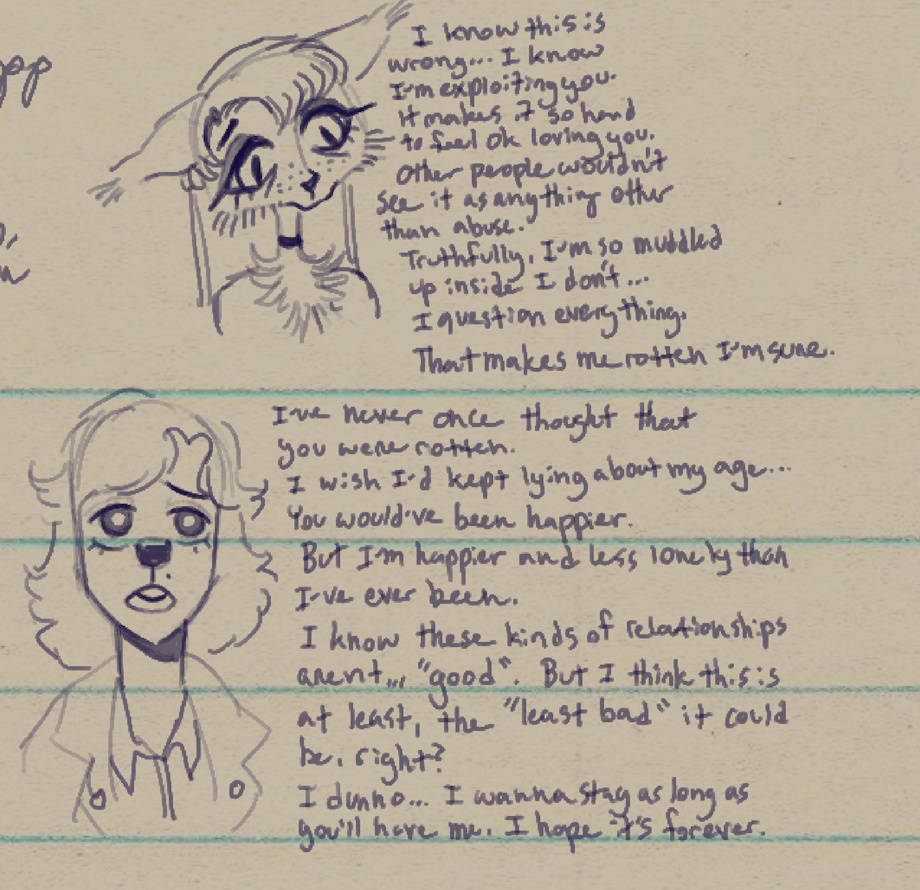 I know this is
wrong... I know
I'm exploiting you.
It makes it so hard
to feel ok loving you.
Other people wouldn't
see it as anything other
than abuse.
Truthfully, I'm so muddled
up inside I don't...
I question everything.
That makes me rotten I'm sure.
I've never once thought that
you were rotten.
I wish I'd kept lying about my age...
You would've been happier.
But I'm happier and less lonely than
I've ever been.
I know these kinds of relationships
arent... "good". But I think this is
at least, the "least bad" it could
be, right?
I dunno... I wanna stay as long as
you'll have me. I hope it's forever.